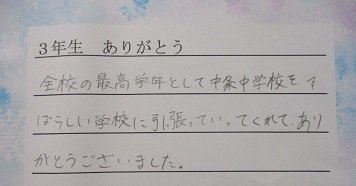 3年生　ありがとう
全校の最高学年として中条中学校をす
ばらしい学校に引張っていってくれて、あり
がとうございました。